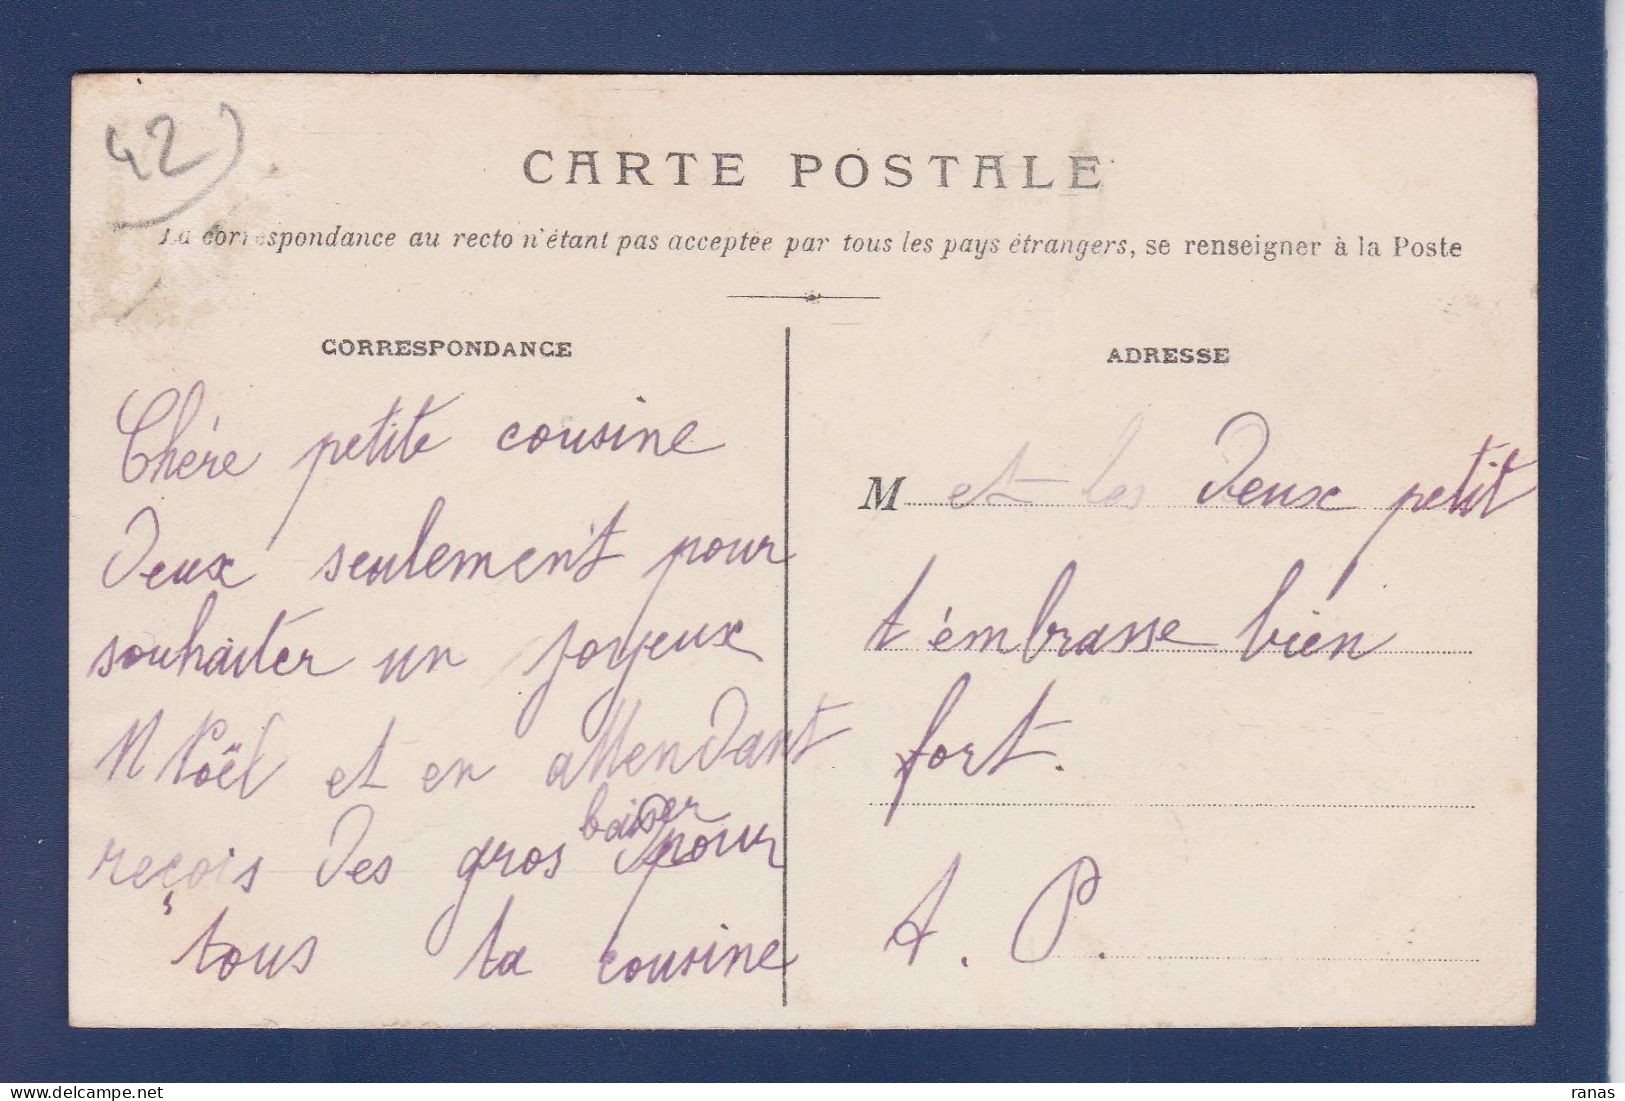 42)
CARTE POSTALE
La correspondance au recto n'étant pas acceptée par tous les pays étrangers, se renseigner à la Poste
CORRESPONDANCE
Chère petite cousine
Deux seulement pour
souhaiter un joyeux
Noël et en attendant
reçois des gros baiser pour
tous ta cousine
ADRESSE
M et les Deux petit
t'embrasse bien
fort.
A. P.
ranas